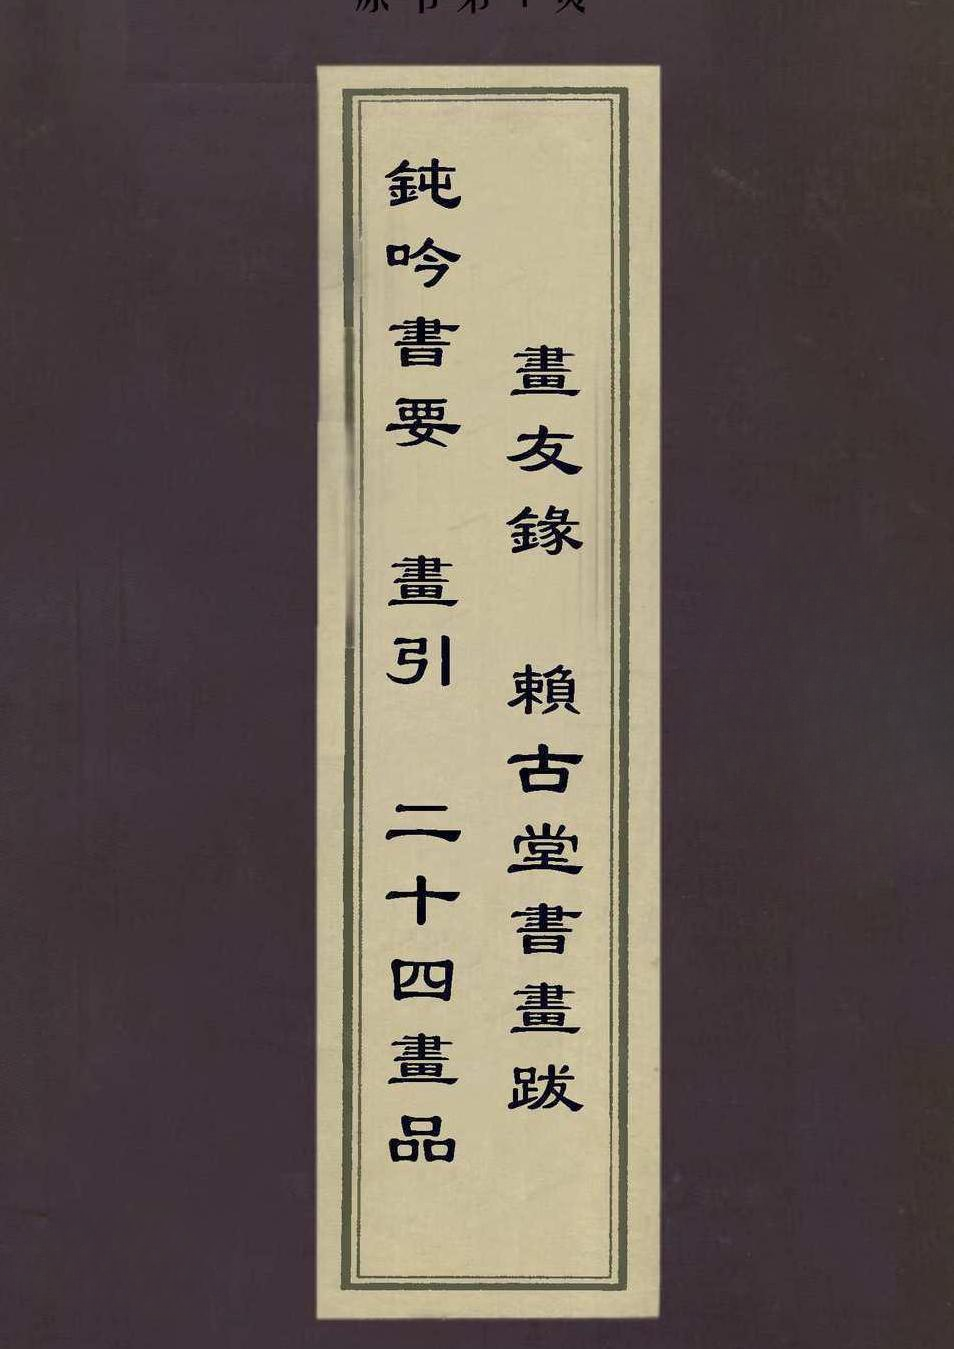 畫友錄 賴古堂書畫跋
鈍吟書要 畫引 二十四畫品